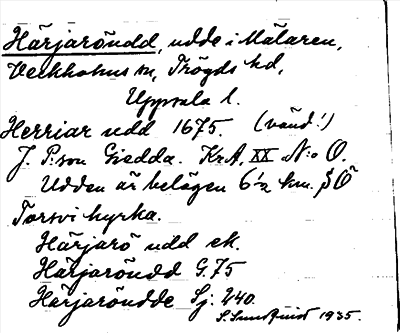 Härjaröudd, udde i Mälaren,
Veckholms sn, Trögds hd,
Uppsala l.
Herriar udd 1675. (vänd!)
J. P:son Giedda. Kr.A. XX N:o O.
Udden är belägen 6½ km. SÖ
Torsvi kyrka.
Härjarö udd ek.
Härjaröudd G. 75
Härjaröudde Sj. 240.
S. Sundquist 1935.